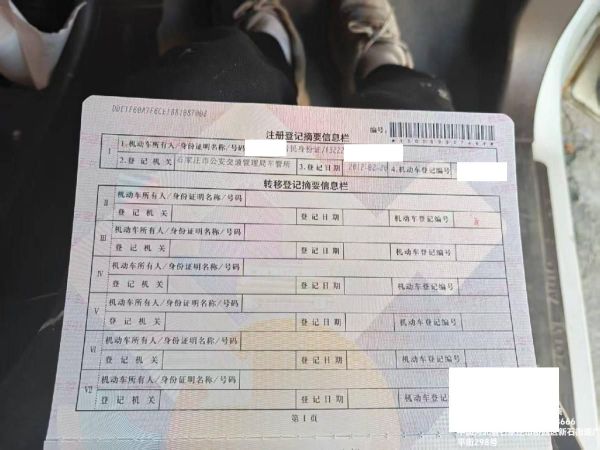 注册登记摘要信息栏
编号:
I
1.机动车所有人/身份证明名称/号码 居民身份证/13222
2.登记机关 石家庄市公安交通管理局车管所 3.登记日期 2012-02-20 4.机动车登记编号
转移登记摘要信息栏
II
机动车所有人/身份证明名称/号码
登记机关 登记日期 机动车登记编号
III
机动车所有人/身份证明名称/号码
登记机关 登记日期 机动车登记编号
IV
机动车所有人/身份证明名称/号码
登记机关 登记日期 机动车登记编号
V
机动车所有人/身份证明名称/号码
登记机关 登记日期 机动车登记编号
VI
机动车所有人/身份证明名称/号码
登记机关 登记日期 机动车登记编号
VII
机动车所有人/身份证明名称/号码
登记机关 登记日期 机动车登记编号
第1页
平街298号